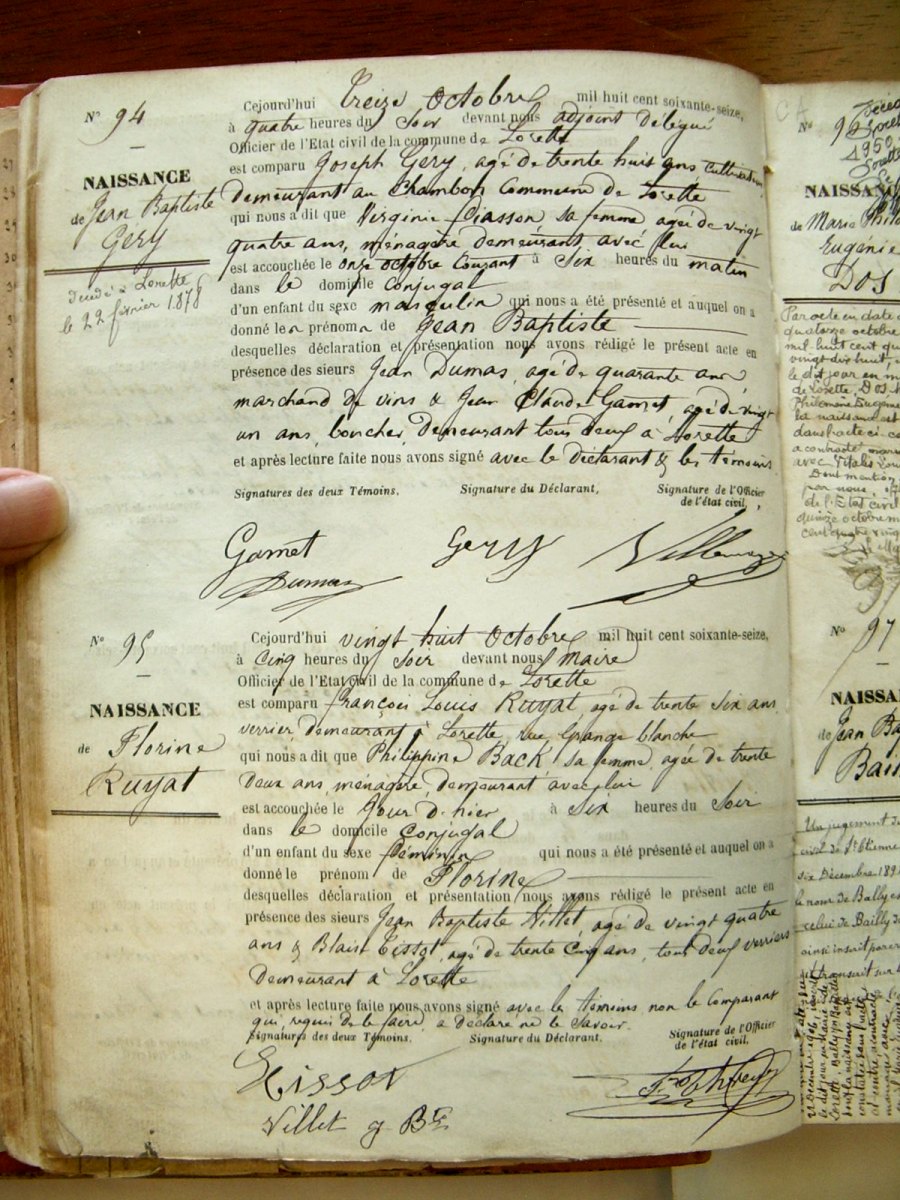 Nº 94
NAISSANCE
de Jean Baptiste
Gery
décédé à Lorette
le 22 février 1878
Cejourd'hui treize Octobre mil huit cent soixante-seize,
à quatre heures du Soir devant nous adjoint délégué
Officier de l'Etat civil de la commune de Lorette
est comparu Joseph Gery, agé de trente huit ans cultivateur
demeurant au Chambon Commune de Lorette
qui nous a dit que Virginie sa femme agée de vingt
quatre ans, ménagère demeurant avec lui
est accouchée le onze octobre Courant à Six heures du matin
dans le domicile Conjugal
d'un enfant du sexe masculin qui nous a été présenté et auquel on a
donné les prénoms de Jean Baptiste
desquelles déclaration et présentation nous avons rédigé le présent acte en
présence des sieurs Jean Dumas, agé de quarante ans
marchand de vins & Jean Claude Gamet, agé de vingt
un ans, boucher, demeurant tous deux à Lorette
et après lecture faite nous avons signé avec le déclarant & les témoins
Signatures des deux Témoins, Signature du Déclarant, Signature de l'Officier
de l'état civil,
Gamet Gery
Dumas
Nº 95
NAISSANCE
de Florine
Ruyat
Cejourd'hui vingt huit Octobre mil huit cent soixante-seize,
à Cinq heures du Soir devant nous Maire
Officier de l'Etat civil de la commune de Lorette
est comparu François Louis Ruyat agé de trente Six ans
verrier, demeurant à Lorette, rue Grange blanche
qui nous a dit que Philippine Back sa femme, agée de trente
deux ans, ménagère, demeurant avec lui
est accouchée le Jour d'hier à Six heures du Soir
dans le domicile Conjugal
d'un enfant du sexe féminin qui nous a été présenté et auquel on a
donné le prénom de Florine
desquelles déclaration et présentation nous avons rédigé le présent acte en
présence des sieurs Jean Baptiste Villet, agé de vingt quatre
ans & Blaise Tissot, agé de trente Cinq ans, tous deux verriers
demeurant à Lorette
et après lecture faite nous avons signé avec les témoins non le Comparant
qui, requis de le faire, a déclaré ne le Savoir.
Signatures des deux Témoins. Signature du Déclarant. Signature de l'Officier
de l'état civil,
Tissot
Villet J Bte
Nº 96
1950
NAISSANC
de Marie
Eugénie
DOS
Par acte en date
quatorze octobre
mil huit cent qu
vingt dix huit,
le dit jour en m
de Lorette, Dos
Philomène Eugénie
la naissance est
dans l'acte ci-co
a contracté
avec Vitalis
Dont mention
par nous,
de l'Etat civil
quinze octobre m
cent quatre ving
Nº 97
NAISSA
de Jean Ba
Bai
Un jugement
civil de St Etienne
six Décembre 189
le nom de Bally
celui de Bailly
ainsi inscrit